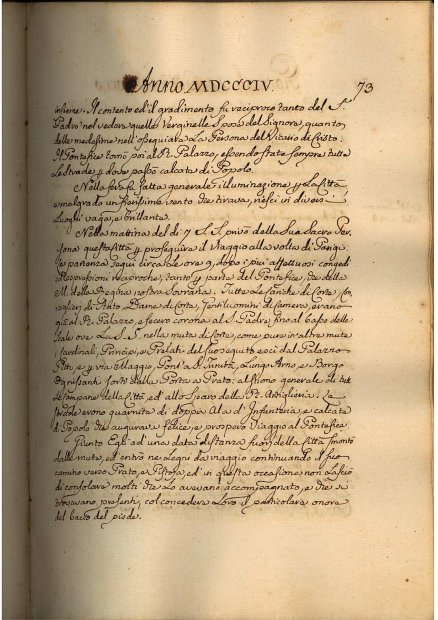 Anno MDCCCIV. 73
insieme. Il contento ed il gradimento fu reciproco tanto del S.
Padre nel vedere quelle Verginelle Spose del Signore, quanto
delle medesime nell'ossequiare La Persona del Vicario di Cristo.
Il Pontefice tornò poi al R. Palazzo, essendo state sempre tutte
Le strade p dove passò calcate di Popolo.
Nella sera fu fatta generale illuminazione p La Città,
e malgrado un fierissimo vento che tirava, riescì in diversi
Luoghi vaga, e brillante.
Nella mattina del dì 7 S. S. privò della Sua Sacra Per-
sona questa Città p proseguire il viaggio alla volta di Parigi.
La partenza seguì circa le ore 9, dopo i più affettuosi congedi
ed espressioni reciproche, tanto p parte del Pontefice, che della
M. della Regina nostra Sovrana. Tutte Le Cariche di Corte, Con-
siglieri di Stato, Dame di Corte, Gentiluomini di Camera, erano
già al R. Palazzo, e fecero corona al S. Padre fino al capo delle
Scale ove La S. S. nella muta di Corte, come pure in altre mute
i Cardinali, Principi, e Prelati del suo seguito escì dal Palazzo
Pitti, e p via Maggio, Pont' a S. Trinita, Lungo Arno, e Borgo
Ognissanti sortì dalla Porta a Prato: al suono generale di tutte
Le Campane della Città ed allo Sparo della R. Artiglieria. Le
strade erano guarnite di doppia Ala d'Infanteria e calcate
di Popolo che augurava felice, e prospero Viaggio al Pontefice.
Giunto Egli ad una data distanza fuori della Città smontò
dalle mute, ed entrò ne Legni da viaggio continuando il suo
cammino verso Prato, e Pistoja, ed in questa occasione non lasciò
di consolare molti che Lo avevano accompagnato, e che si
trovavano presenti, col concedere Loro il particolare onore
del bacio del piede.